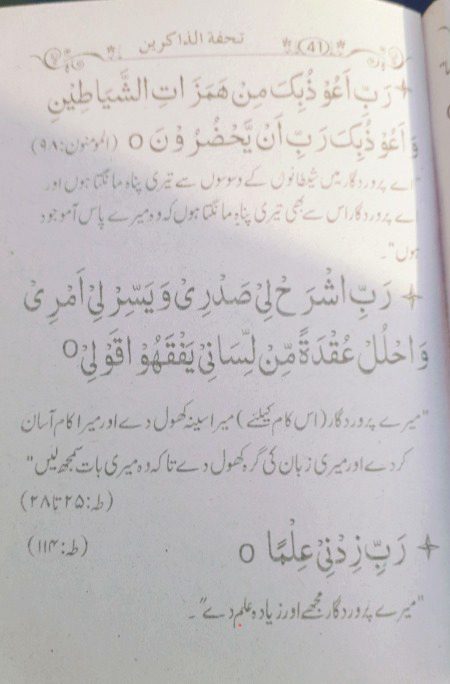 تحفۃ الذاکرین (41)
رَبِّ اَعُوْذُبِكَ مِنْ هَمَزَاتِ الشَّيَاطِيْنِ
وَاَعُوْذُبِكَ رَبِّ اَنْ يَّحْضُرُوْنَ ○ (المؤمنون:۹۸)
"اے پروردگار میں شیطانوں کے وسوسوں سے تیری پناہ مانگتا ہوں اور
اے پروردگار اس سے بھی تیری پناہ مانگتا ہوں کہ وہ میرے پاس آموجود
ہوں"۔
رَبِّ اشْرَحْ لِىْ صَدْرِىْ وَيَسِّرْ لِىْ اَمْرِىْ
وَاحْلُلْ عُقْدَةً مِّنْ لِّسَانِىْ يَفْقَهُوْا قَوْلِىْ ○
"میرے پروردگار (اس کام کیلئے) میرا سینہ کھول دے اور میرا کام آسان
کردے اور میری زبان کی گرہ کھول دے تاکہ وہ میری بات سمجھ لیں"
(طہ:۲۵ تا ۲۸)
رَبِّ زِدْنِىْ عِلْمًا ○ (طہ:۱۱۴)
"میرے پروردگار مجھے اور زیادہ علم دے"۔